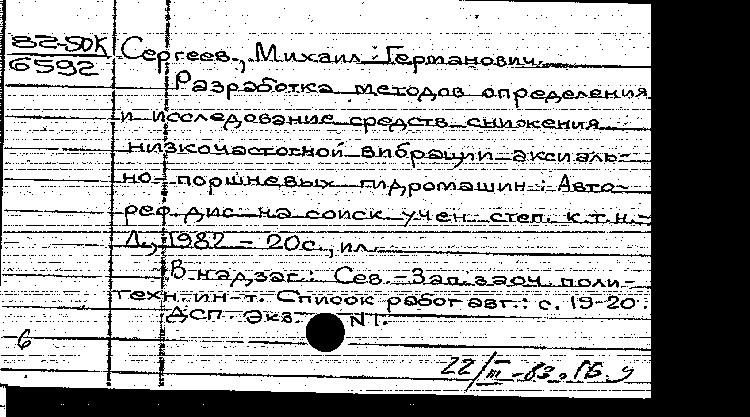 82-5ДК
6592
Сергеев, Михаил Германович.
Разработка методов определения
и исследование средств снижения
низкочастотной вибрации аксиаль-
но-поршневых гидромашин: Авто-
реф. дис. на соиск. учен. степ. к.т.н. -
Л., 1982 - 20с., ил.
В надзаг.: Сев.-Зап. заоч. поли-
техн. ин-т. Список работ авт.: с. 19-20.
ДСП. Экз. N1.
6
22/III-83